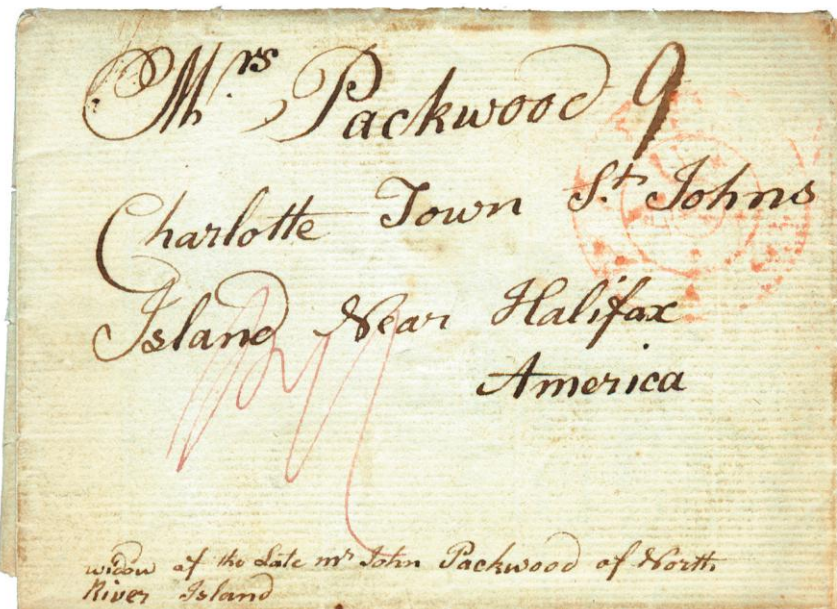 Mrs Packwood 9
Charlotte Town St Johns
Island Near Halifax
America
widow of the Late mr John Packwood of North
River Island